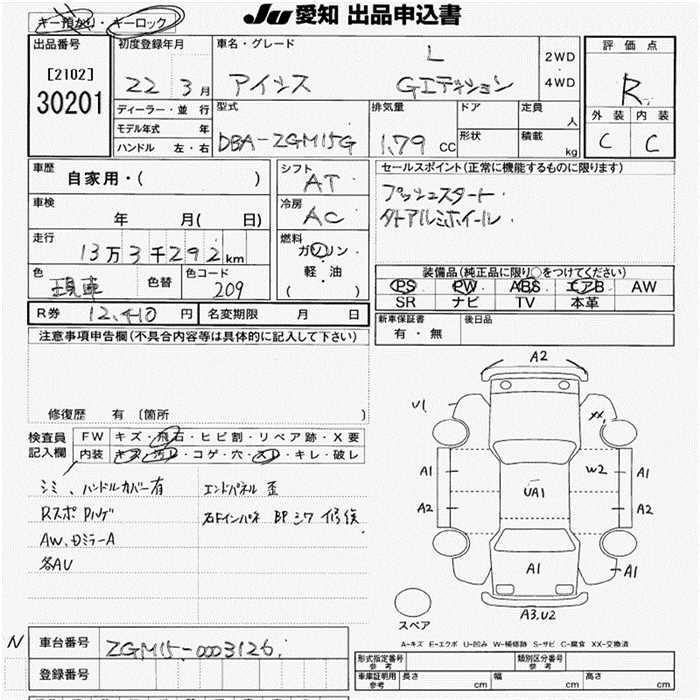 キー預かり・キーロック
JU 愛知 出品申込書
出品番号
[2102]
30201
初度登録年月
22 3月
車名・グレード
アイシス L Gエディション
2WD
・
4WD
評価点
R
外装 内装
C C
ディーラー・並行
モデル年式 年
ハンドル 左・右
型式
DBA-ZGM15G
排気量
1.79 CC
ドア
形状
定員
人
積載
kg
車歴
自家用・( )
シフト
AT
セールスポイント(正常に機能するものに限ります)
プッシュスタート
タトアルミホイール
車検
年 月( 日)
冷房
AC
走行
13万3千292km
燃料
ガソリン
・
軽・油
( )
色
現車
色替
色コード
209
装備品(純正品に限り○をつけてください)
PS PW ABS エアB AW
SR ナビ TV 本革
R券 12,410 円
名変期限 月 日
新車保証書
有・無
後日品
注意事項申告欄(不具合内容等は具体的に記入して下さい)
修復歴 有 〔箇所 〕
検査員
記入欄
FW キズ・飛石・ヒビ割・リペア跡・X要
内装 キズ・汚レ・コゲ・穴・スレ・キレ・破レ
シミ、ハンドルカバー有
Rスポ Pハゲ
AW、Dミラー A
各AU
エンドパネル 歪
右Fインパネ BP シワ 修後
A2
U1
XX
A1
A2
W2
UA1
A1
A2
A1
A1
A3.U2
スペア
A-キズ E-エクボ U-凹み W-補修跡 S-サビ C-腐食 XX-交換済
N
車台番号
ZGM15-0003126
登録番号
形式指定番号
参考
類別区分番号
参考
車庫証明用
参考
長さ cm
幅 cm
高さ cm